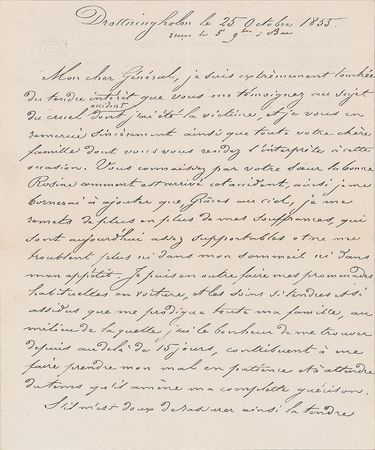 Drottningholm le 25 Octobre 1855
reçue le 5 9bre à
Mon cher Général, je suis extrêmement touchée
du tendre intérêt que vous me témoignez au sujet
accident
du cruel dont j'ai été la victime, et je vous en
remercie sincèrement ainsi que toute votre chère
famille dont vous vous rendez l'interprète à cette
occasion. Vous connaissez par votre sœur la bonne
Rosine comment est arrivé cet accident, ainsi je me
bornerai à ajouter que Grâces au ciel, je me
remets de plus en plus de mes souffrances, qui
sont aujourd'hui assez supportables et ne me
troublent plus ni dans mon sommeil ni dans
mon appétit. Je puis en outre faire mes promenades
habituelles en voiture, et les soins si tendres et si
assidus que me prodigue toute ma famille, au
milieu de laquelle j'ai le bonheur de me trouver
depuis au delà de 15 jours, contribuent à me
faire prendre mon mal en patience et à attendre
du tems qu'il amène ma complette guérison.
S'il m'est doux de rassurer ainsi la tendre